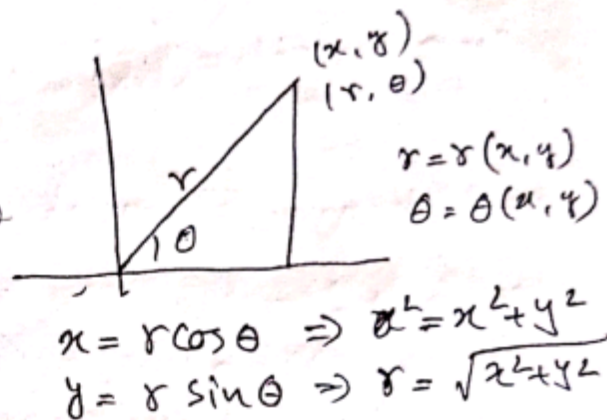 (x, y)
(r, θ)
r
θ
r = r(x, y)
θ = θ(x, y)
x = r cos θ ⇒ r² = x² + y²
y = r sin θ ⇒ r = √x² + y²